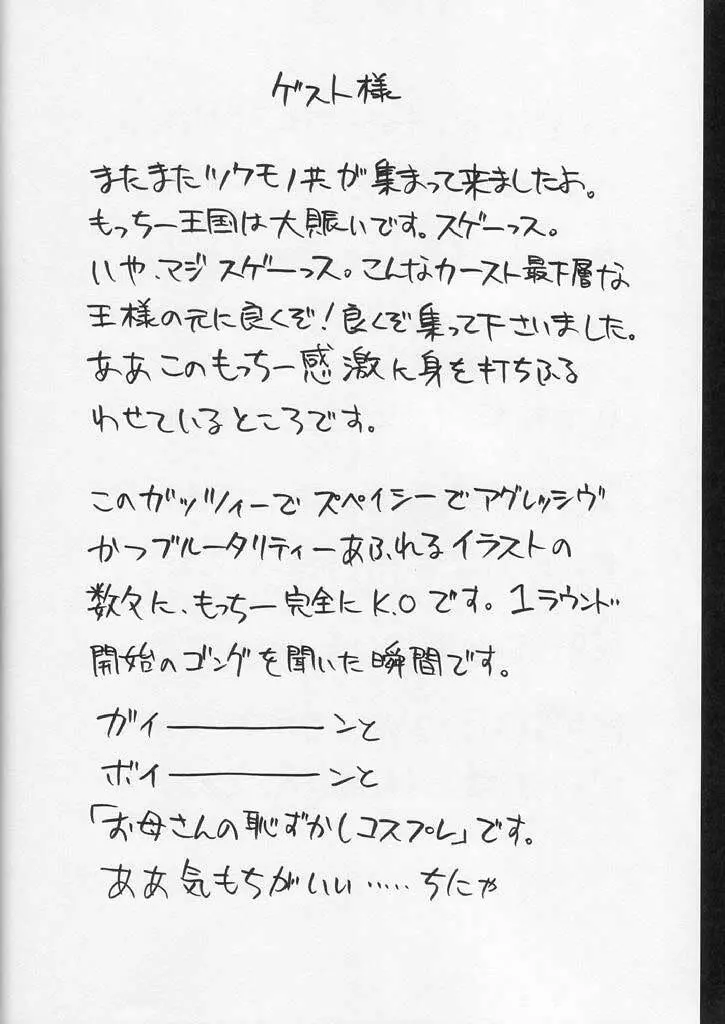 ゲスト様
またまたツワモノ共が集まって来ましたよ。
もっちー王国は大賑いです。スゲーっス。
いや、マジスゲーっス。こんなカースト最下層な
王様の元に良くぞ!良くぞ集って下さいました。
ああこのもっちー感激に身を打ちふる
わせているところです。
このガッツィーでスペイシーでアグレッシヴ
かつブルータリティーあふれるイラストの
数々に、もっちー完全にK.Oです。1ラウンド
開始のゴングを聞いた瞬間です。
ガイ————ンと
ボイ————ンと
「お母さんの恥ずかしコスプレ」です。
ああ気もちがいい・・・・・ちにゃ